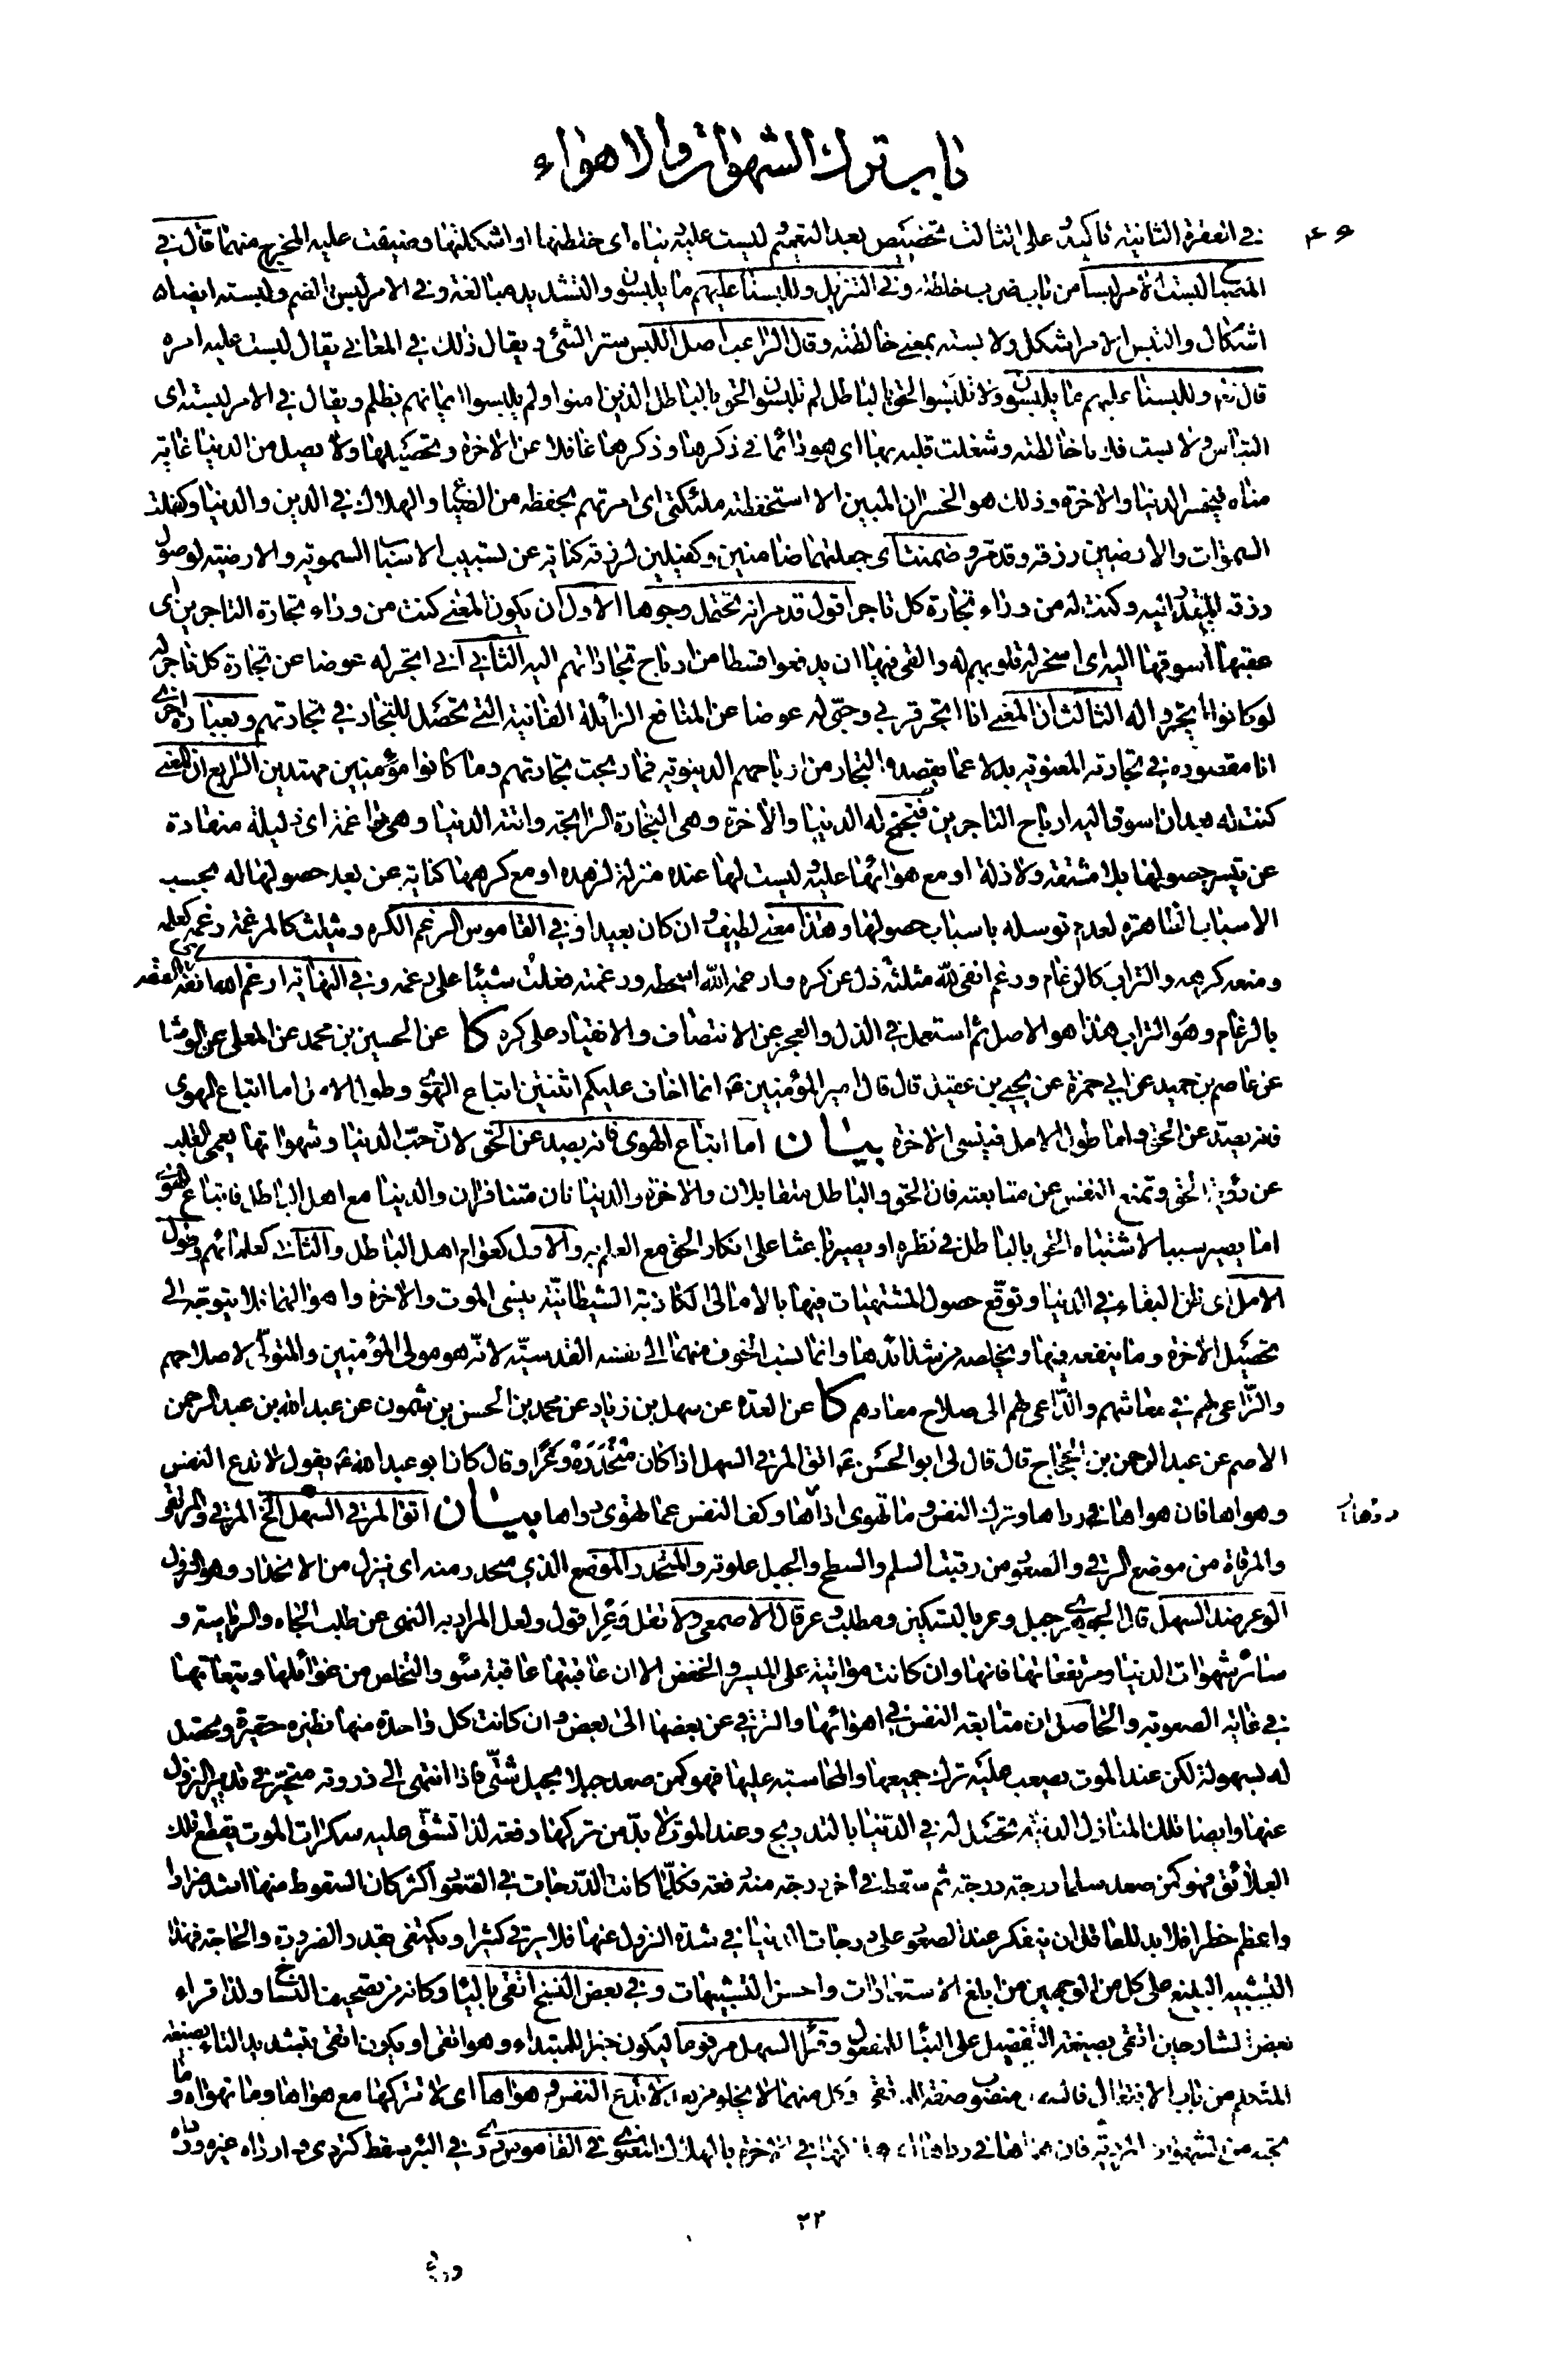 باب ترك الشهوات والاهواء
في الفقرة الثانية تاكيد وعلى الثالث تخصيص بعد التعميم لبست عليه دنياه اي خلطتها او اشكلتها وضيقت عليه المخرج منها قال في
المصباح لبست الامر لبسا من باب ضرب خلطته وفي التنزيل وللبسنا عليهم ما يلبسون والتشديد مبالغة وفي الامر لبس بالضم ولبسة ايضا اي
اشكال والتبس الامر اشكل ولابسته بمعنى خالطته وقال الراغب اصل اللبس ستر الشئ ويقال ذلك في المعاني يقال لبست عليه امره
قال تعم وللبسنا عليهم ما يلبسون ولا تلبسوا الحق بالباطل لم تلبسون الحق بالباطل الذين امنوا ولم يلبسوا ايمانهم بظلم ويقال في الامر لبسة اي
التباس ولابست فلانا خالطته وشغلت قلبه بها اي هو دائما في ذكرها وذكرها غافلا عن الاخرة وتحصيلها ولا يصل من الدنيا غاية
مناه فيخسر الدنيا والاخرة وذلك هو الخسران المبين الا استحفظته ملئكتي اي امرتهم بحفظه من الضياع والهلاك في الدين والدنيا وكفلت
السموات والارضين رزقه وقد مر وضمنت اي جعلتهما ضامنين وكفيلين لرزقه كناية عن تسبيب الاسباب السموية والارضية لوصول
رزقه المقدر اليه وكنت له من وراء تجارة كل تاجر اقول قد مر انه يحتمل وجوها الاول ان يكون المعنى كنت من وراء تجارة التاجرين اي
عقبها اسوقها اليه اي اسخر له قلوبهم له والقي فيها ان يدفعوا قسطا من ارباح تجاراتهم اليه الثاني اني اتجر له عوضا عن تجارة كل تاجر له
لو كانوا اتجروا له الثالث ان المعنى انا اتجر قربي وحبي له عوضا عن المنافع الزائلة الفانية التي تحصل للتجار في تجارتهم وبعبارة اخرى
انا مقصوده في تجارته المعنوية بدلا عما يقصده التجار من ارباحهم الدنيوية فما ربحت تجارتهم وما كانوا مؤمنين مهتدين الرابع ان المعنى
كنت له بعد ان اسوق اليه ارباح التاجرين فتجتمع له الدنيا والاخرة وهي التجارة الرابحة واتته الدنيا وهي راغمة اي ذليلة منقادة
عن تيسر حصولها بلا مشقة ولا ذلة او مع هوانها عليه وليست لها عنده منزلة لزهده او مع كرهها كناية عن بعد حصولها له بحسب
الاسباب الظاهرة لعدم توسله باسباب حصولها وهذا معنى لطيف وان كان بعيدا وفي القاموس الرغم الكره ويثلث كالمرغمة رغمه كعلمه
ومنعه كرهه والتراب كالرغام ورغم انفي لله مثلثة ذل عن كره وارغمه الله اسخطه ورغمته فعلت شيئا على رغمه وفي النهاية ارغم الله انفه الصقه
بالرغام وهو التراب هذا هو الاصل ثم استعمل في الذل والعجز عن الانتصاف والانقياد على كره كا عن الحسين بن محمد عن المعلى عن الوشا
عن عاصم بن حميد عن ابي حمزة عن يحيى بن عقيل قال قال امير المؤمنين ع انما اخاف عليكم اثنتين اتباع الهوى وطول الامل اما اتباع الهوى
فانه يصد عن الحق واما طول الامل فينسي الاخرة بيان اما اتباع الهوى فانه يصد عن الحق لان حب الدنيا وشهواتها يعمي القلب
عن رؤية الحق وتمنع النفس عن متابعته فان الحق والباطل متقابلان والاخرة والدنيا ضرتان متنافرتان والدنيا مع اهل الباطل فاتباع الهوى
اما يصير سببا لاشتباه الحق بالباطل في نظره او يصير باعثا على انكار الحق مع العلم به والاول كعوام اهل الباطل والثاني كعلمائهم وطول
الامل اي ظن البقاء في الدنيا وتوقع حصول المشتهيات فيها بالاماني الكاذبة الشيطانية ينسي الموت والاخرة واهوالهما فلا يتوجه الى
تحصيل الاخرة وما ينفعه فيها ويخلصه من شدائدها وانما نسب الخوف منهما الى نفسه القدسية لانه هو مولى المؤمنين والمتولي لاصلاحهم
والراعي لهم في معاشهم والداعي لهم الى صلاح معادهم كا عن العدة عن سهل بن زياد عن محمد بن الحسن بن شمون عن عبد الله بن عبد الرحمن
الاصم عن عبد الرحمن بن الحجاج قال قال لي ابو الحسن ع اتق المرتقى السهل اذا كان منحدره وعرا وقال كان ابو عبد الله ع يقول لا تدع النفس
وهواها فان هواها في رداها وترك النفس وما تهوى اذاها وكف النفس عما تهوى دواها بيان اتق المرتقى السهل الخ المرتقى والمرقى
والمرقاة من موضع الرقي والصعود من رقيت السلم والسطح والجبل علوته والمنحدر الموضع الذي ينحدر منه اي ينزل من الانحدار وهو النزول
الوعر ضد السهل قال الجوهري جبل وعر بالتسكين ومطلب وعر قال الاصمعي ولا تقل وعر اقول ولعل المراد به النهي عن طلب الجاه والرياسة و
سائر شهوات الدنيا ومرتفعاتها فانها وان كانت مواتية على اليسر والخفض الا ان عاقبتها عاقبة سوء والتخلص من غوائلها وتبعاتها
في غاية الصعوبة والحاصل ان متابعة النفس في اهوائها والترقي عن بعضها الى بعض وان كانت كل واحدة منها نظيره حقيرة ويحصل
له بسهولة لكن عند الموت يصعب عليه ترك جميعها والمحاسبة عليها فهو كمن صعد جبلا بحيل شتى فاذا انتهى الى ذروته تحير في تدبير النزول
عنها وايضا تلك المنازل الدنية تتحصل له في الدنيا بالتدريج وعند الموت لا بد من تركها دفعة لذا تشق عليه سكرات الموت بقطع تلك
العلائق فهو كمن صعد سلما درجة درجة ثم سقط في اخر درجة منه دفعة فكلما كانت الدرجات في الصعود اكثر كان السقوط منها اشد ضررا
واعظم خطرا فلا بد للعاقل ان يتفكر عند الصعود على درجات الدنيا في شدة النزول عنها فلا يرقى كثيرا ويكتفي بقدر الضرورة والحاجة فهذا
التشبيه البليغ على كل من الوجهين من ابلغ الاستعارات واحسن التشبيهات وفي بعض النسخ اتقى بالياء وكانه من تصحيف النساخ ولذا قراء
بعض الشارحين اتقى بصيغة التفضيل على البناء للمفعول وقراء السهل مرفوعا ليكون خبرا للمبتداء وهو اتقى او يكون اتقي بتشديد التاء بصيغة
المتكلم من باب الافتعال فالسهل منصوب صفة للمرتقى وكل منهما لا يخلو من بعد لا تدع النفس وهواها اي لا تتركها مع هواها وما تهواه وما
تحبه من الشهوات المردية فان هواها في رداها اي هلاكها في الاخرة بالهلاك المعنوي في القاموس ردي في البئر سقط كتردى وارداه غيره ورداه
٢٢